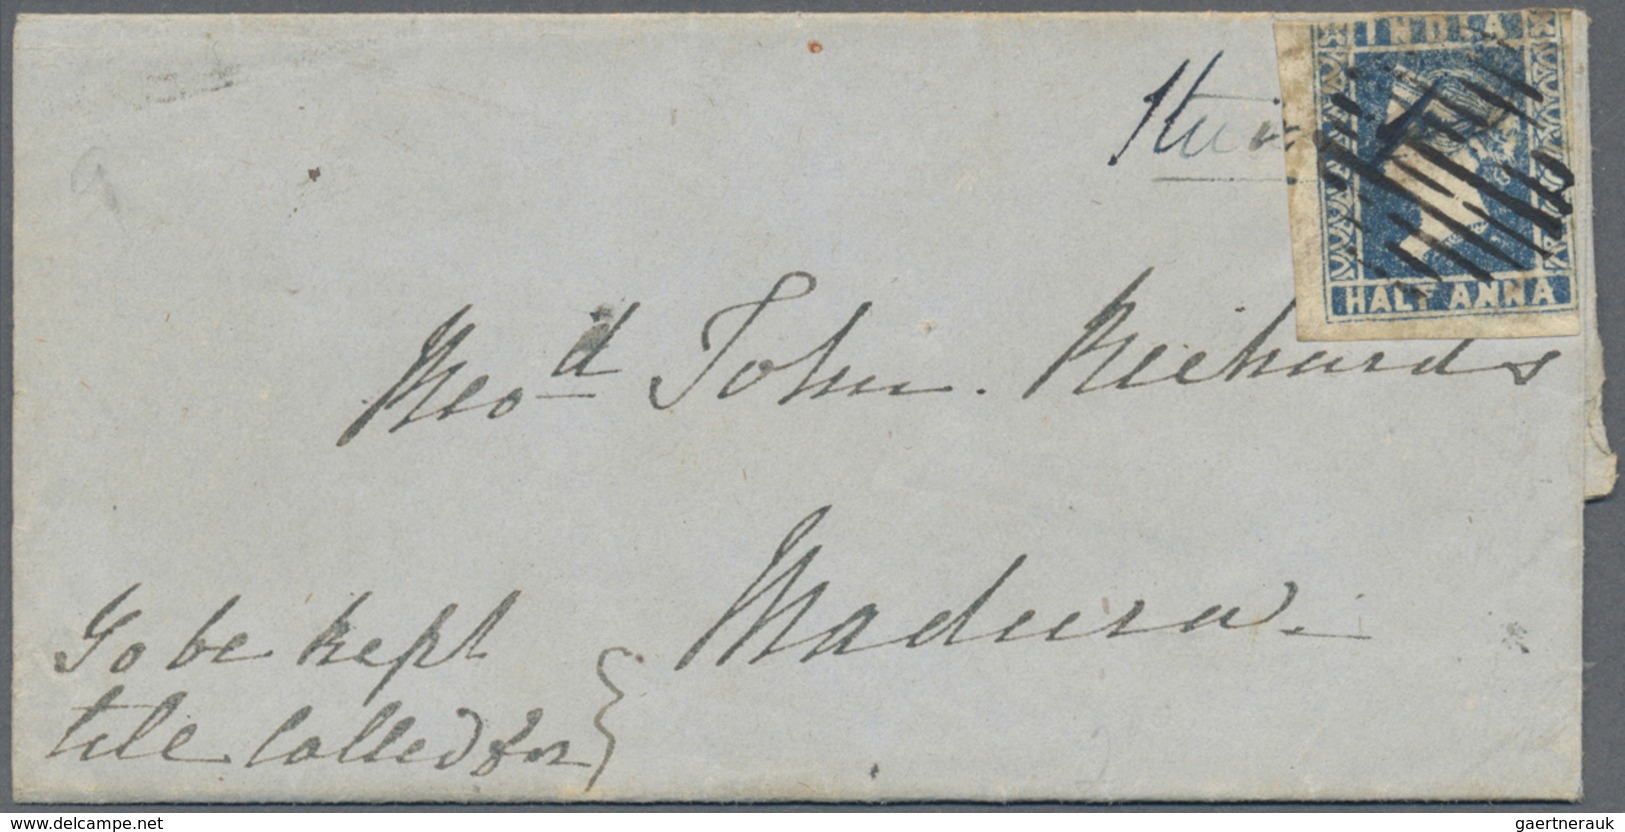 INDIA
HALF ANNA
John Richards
Madura
To be kept
till Called for
www.delcampe.net
gaertnerauk